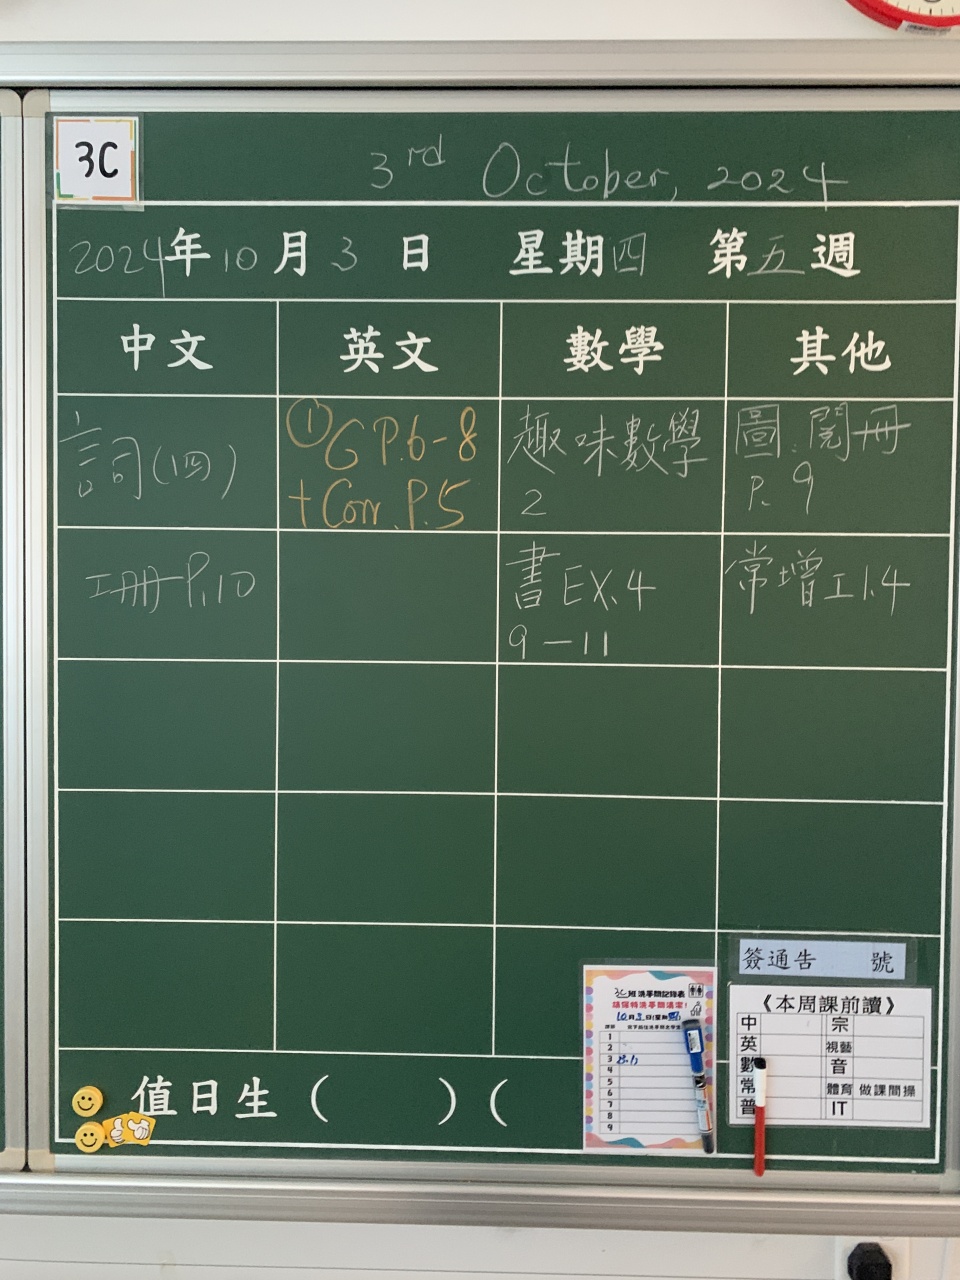 3C
3rd October, 2024
2024年10月3日 星期四 第五週
中文 英文 數學 其他
詞(四)
① G P.6-8
+ Corr. P.5
趣味數學
2
圖.閱冊
P. 9
工冊 P.10
書 EX.4
9－11
常增工1.4
簽通告 號
3C班洗手間記錄表
請保持洗手間清潔!
10月3日(星期四)
1
2
3
4
5
6
7
8
9
《本周課前讀》
中 宗
英 視藝
數 音
常 體育 做課間操
普 IT
值日生 ( ) (